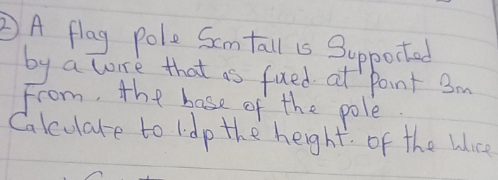 2) A flag pole 5cm tall is Supported
by a wire that is fixed at point 3m
From. the base of the pole.
Calculate to 1.dp the height. of the Wire